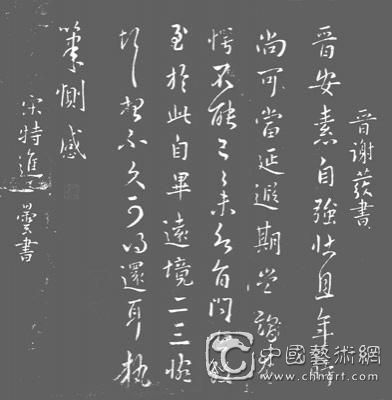 晉謝發書
晉安素自強壯且年時
尚可當延遐期豈謂
愕不能已已未
至於此自畢遠境二三
不久可得還耳執
筆惻感
宋特進曇書
中國藝術網
www.chnart.com